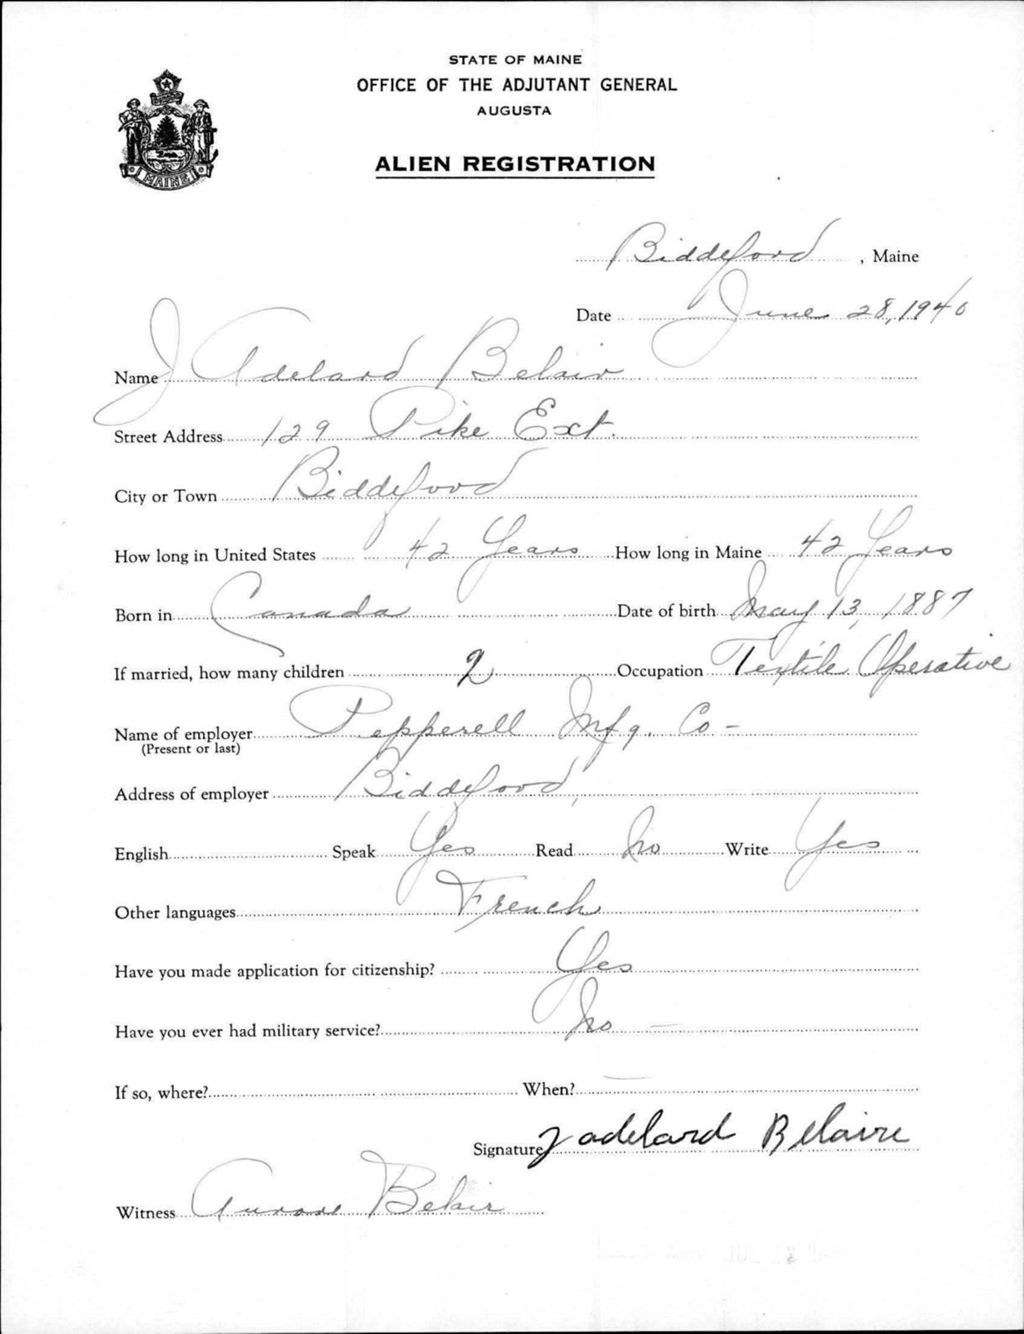 STATE OF MAINE
OFFICE OF THE ADJUTANT GENERAL
AUGUSTA
ALIEN REGISTRATION
MAINE
Biddeford, Maine
Date June 28, 1940
Name J Adelard Belair
Street Address 129 Pike Ext.
City or Town Biddeford
How long in United States 42 Years How long in Maine 42 Years
Born in Canada Date of birth May 13, 1887
If married, how many children 2 Occupation Textile Operative
Name of employer Pepperell Mfg. Co -
(Present or last)
Address of employer Biddeford,
English Speak Yes Read No Write Yes
Other languages French
Have you made application for citizenship? Yes
Have you ever had military service? No —
If so, where? When? —
Signature J adelard Belaire
Witness Aurore Belair